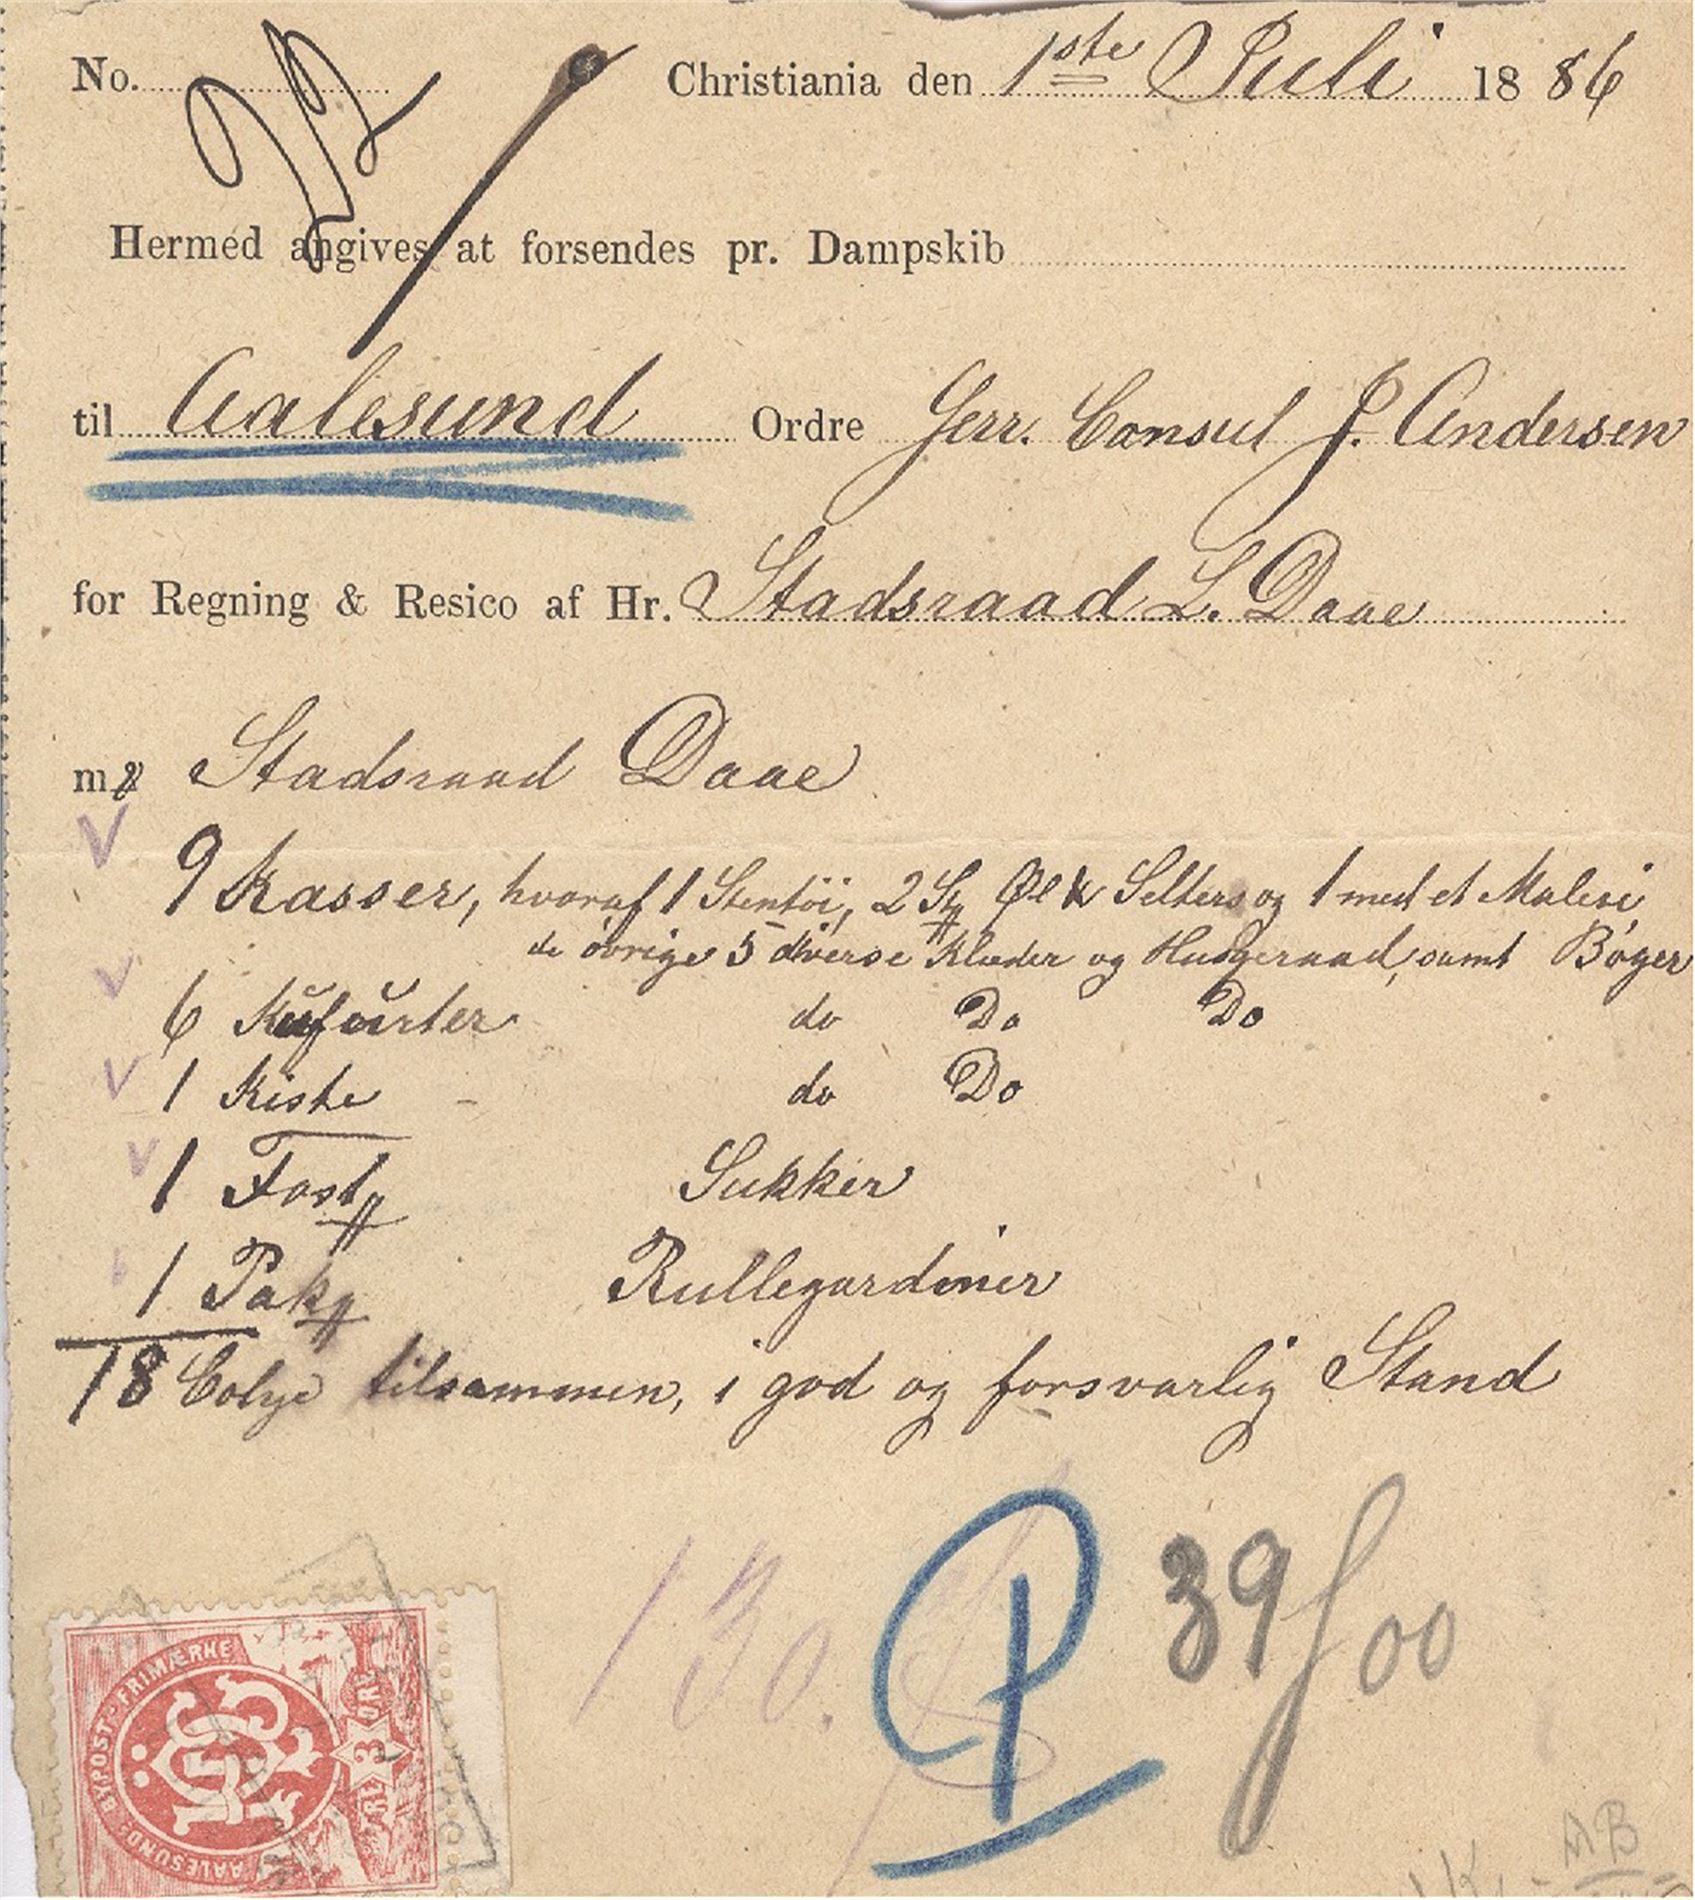 No. Christiania den 1ste Juli 1886
Hermed angives at forsendes pr. Dampskib
til Aalesund Ordre Herr. Consul J. Andersen
for Regning & Resico af Hr. Stadsraad L. Daae
Stadsraad Daae
9 Kasser, hvoraf 1 Stentöi, 2 Øl Selters og 1 med et Maleri,
de övrige 5 diverse Klæder og Husgeraad, samt Bøger
6 Kufurter do Do Do
1 Kiste do Do
1 Sukker
1 Pak Rullegardiner
18 Colye tilsammen, i god og forsvarlig Stand
130. P 39 00
AALESUNDS BYPOST-FRIMÆRKE
3 ØRE
AB